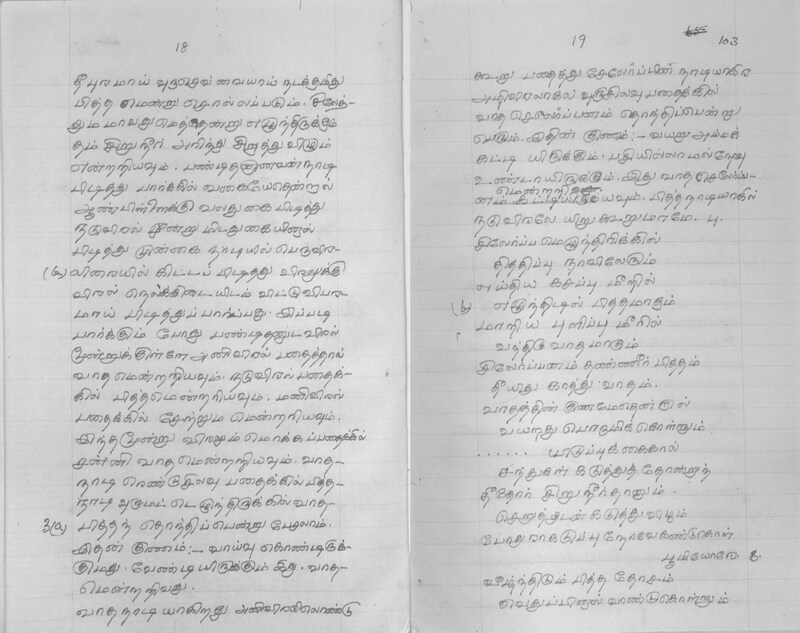 18
தீபுரமாய் வுறுஷவ்வையாம் நடத்தமிது
பித்த மென்று சொல்லப்படும். சிலேத்-
துமமாவது மெத்தென்று எழுந்திருக்கும்
தம் சிறுநீர் அரிந்து சிறுத்து விழும்
என்றறியவும். பண்டிதனானவன் நாடி
பிடித்து பார்க்கில் வகையேதென்றால்
ஆண்பிள்ளைக்கு வலதுகை பிடித்து
நடுவிரல் மூன்று மிடதுகையினால்
பிடித்து முன்கை நாடியில் பெருவிர-
லிரையில் கிட்டப் பிடித்து விரலுக்கு
விரல் நெல்க்கிடையிடம் விட்டு விபர-
மாய் பிடித்துப் பார்ப்பது. இப்படி
பார்க்கும் போது பண்டிதனுட விரல்
மூன்றுக்குள்ளே அணிவிரல் பதைத்தால்
வாத மென்றறியவும். நடுவிரல் பதைக்-
கில் பித்தமென்றறியவும். மணிவிரல்
பதைக்கில் சேற்றும மென்றறியவும்.
இந்த மூன்று விரலும் மொக்கப்பதைக்கில்
சன்னி வாத மென்றறியவும். வாத-
நாடி ரெண்டுசிலவு பதைக்கில் பித்த-
நாடி வுருமட்டெழுந்திருக்கில் வாத-
பித்தந் தொந்திப்பென்று பேராம்.
இதன் குணம்:- வாய்வு கொண்டிருக்-
குமது. வேண்டியிருக்கும் இது. வாத-
மென்றறிவது.
வாத நாடியாகிறது அணிவிரலிலொண்டு
19
103
கூறு பதைத்து சேலேர்ப்பின் நாடியாகிற
அணிவிரலாகில் வுருசிலவு பதைக்கில்
வாத செலெர்ப்பனம் தொந்திப்பென்று
பெடும். இதின் குணம்:- வயறு அம்மக்
கட்டி யிருக்கும். பதியில்லாமல் நேவு
உண்டாயிருக்கும். இது வாத செலேர்ப்ப-
னம் கட்டியிருக்கவும். பித்த நாடியாகில்
மென்றறி
நடுவிரலே யிறு கூறுமாமே. பு.
சிலேர்ப்ப மெழுந்திரிக்கில்
தித்திப்பு நாவிலேறும்
எய்திய கசப்பு மீறில்
எழுந்திடில் பித்தமாகும்
மாறிய புளிப்பு மீறில்
வந்திடு வாதமாகும்
சிலேர்ப்பனம் தண்ணீர் பித்தம்
தீயிது காத்து வாதம்.
வாதத்தின் குணமேதென்றால்
வயறது பொருமிக் கொள்ளும்
...... யிடுப்புக் கைகால்
சந்துகள் கடுத்துத் தோண்றுந்
தீதோர் சிறு நீர்தானும்
செறுத்துடன் கடுத்து விழும்
போதுவாகடுப்பு நோவே கண்டுகொள்
பூமியோரே. 8.
வீழ்ந்திடும் பித்த தோசம்
வெதுப்பினால் வாண்டுகொள்ளும்